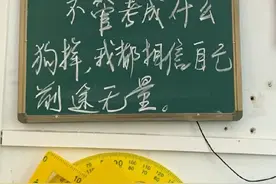 不管考成什么
狗样，我都相信自己
前途无量。